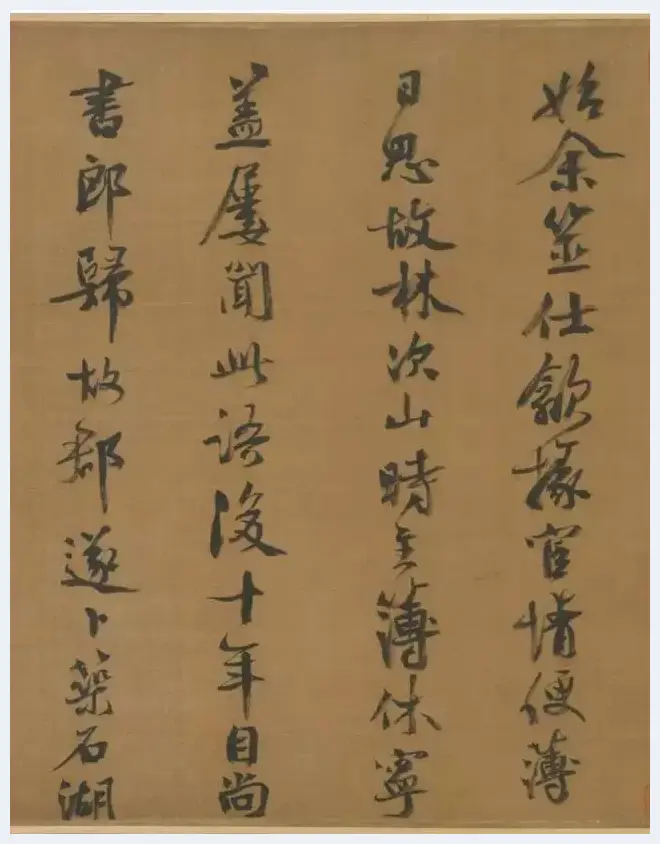 始余筮仕歙掾宦情便薄
日思故林次山時主薄休寧
蓋屢聞此語後十年自尚
書郎歸故郡遂卜築石湖